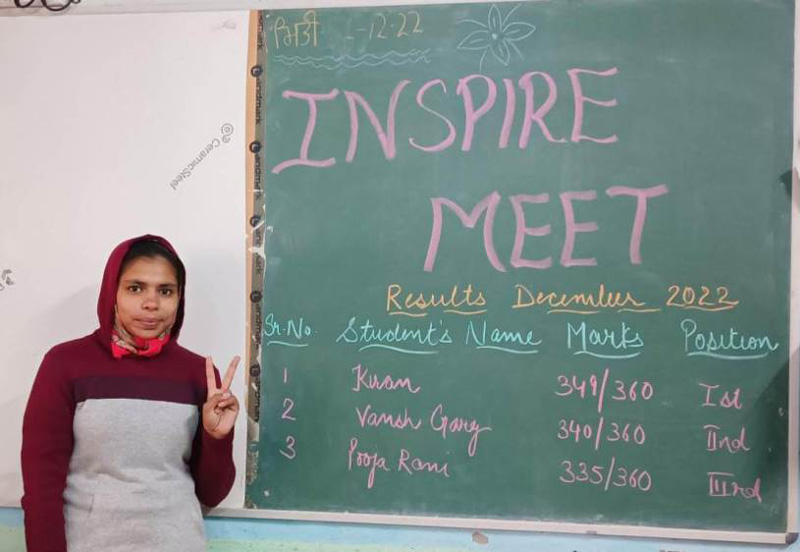 ਮਿਤੀ - -12-22
INSPIRE
MEET
Results December 2022
Sr.No. Student's Name Marks Position
1 Kiran 349/360 Ist
2 Vansh Garg 340/360 IInd
3 Pooja Rani 335/360 IIIrd
@CeramicSteel
Landmark
Landmark
Landmark